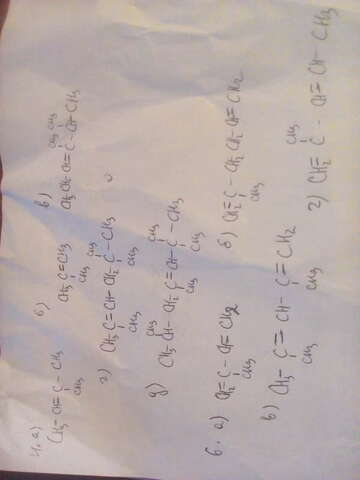 4. а)
CH3-CH=C-CH3
CH3
б)
CH3 C=CH3
CH3
в)
CH3 CH3
CH3 CH2 CH=C-CH-CH3
г)
CH3
CH3 C=CH-CH2 C-CH3
CH3 CH3
д)
CH3 CH3
CH3 CH-CH2 C=CH-C-CH3
CH3 CH3
6. а) CH2=C-CH=CH2
CH3
б) CH2=C-CH2 CH2 CH=CH2
CH3
в) CH3=C=CH-C=CH2
CH3 CH3
CH3
г) CH2=C-CH=CH-CH3